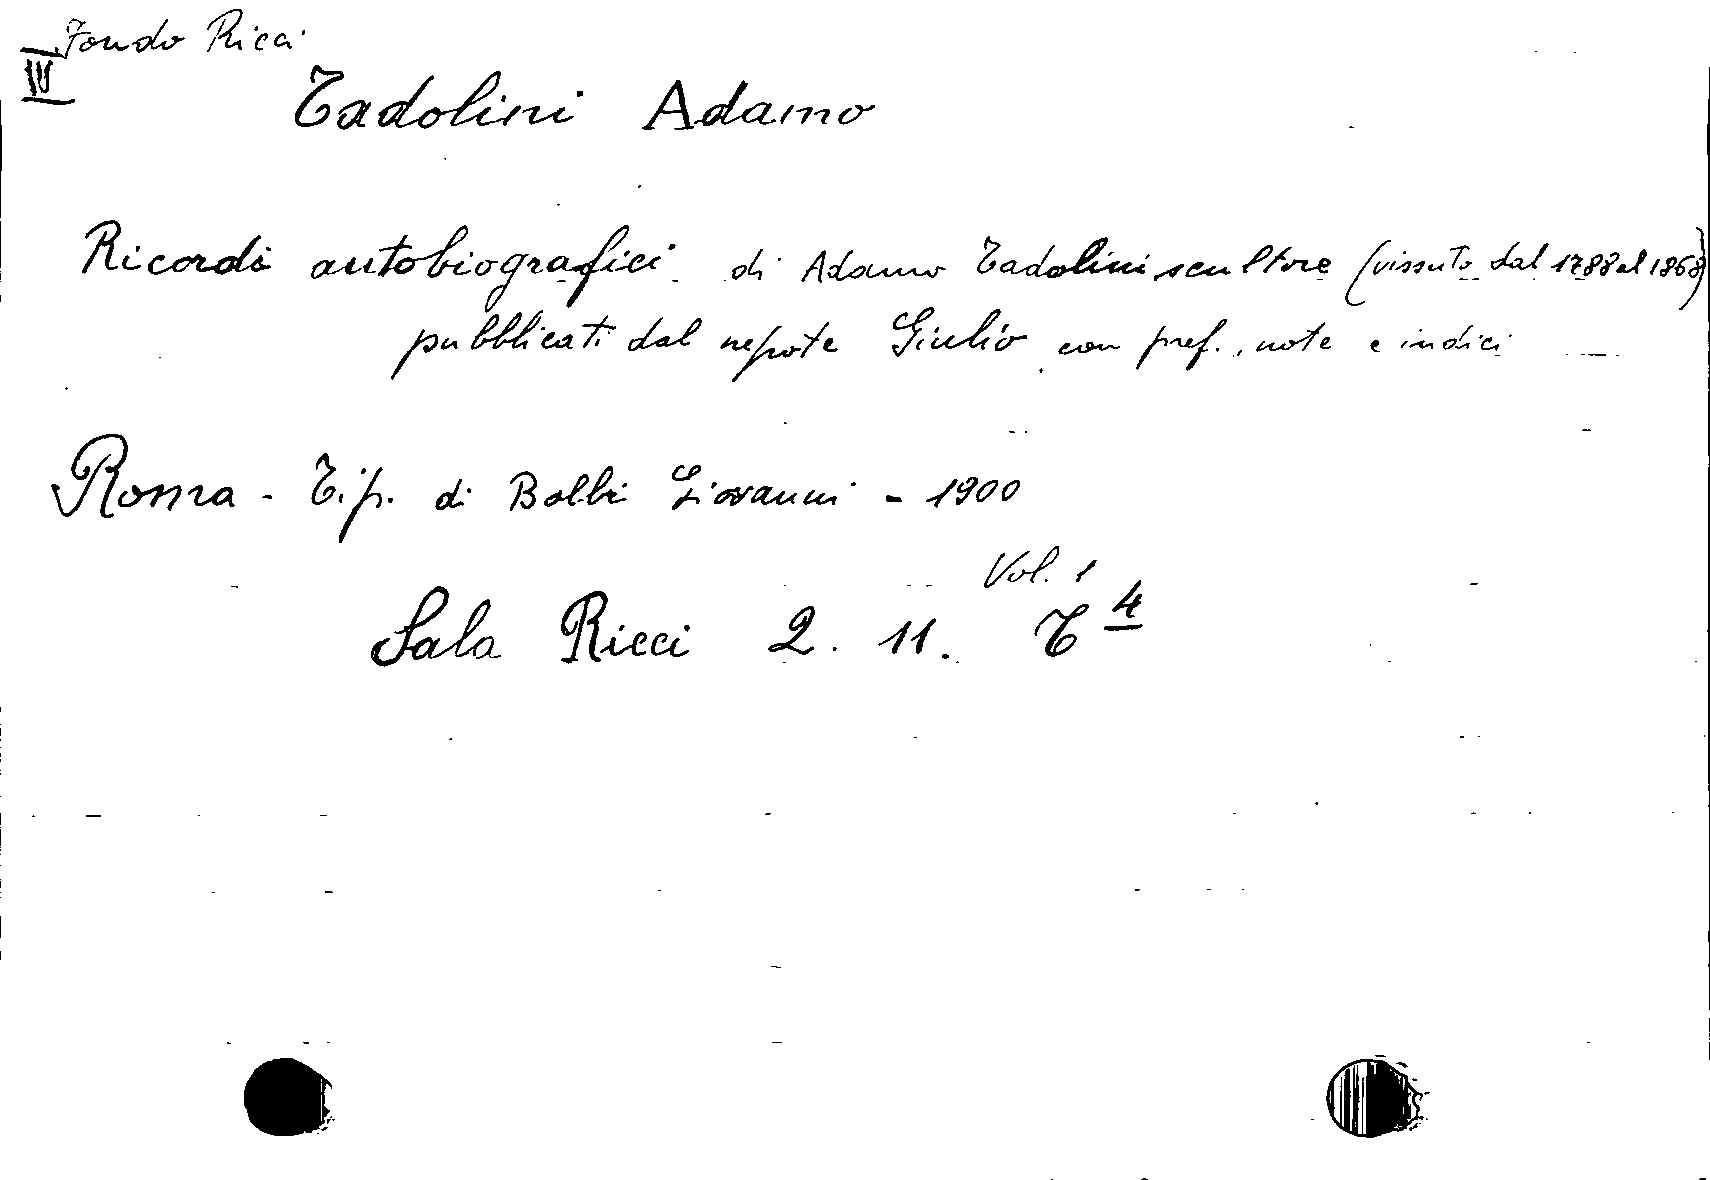 Fondo Ricci
IV
Tadolini Adamo
Ricordi autobiografici di Adamo Tadolini scultore (vissuto dal 1788 al 1868)
pubblicati dal nepote Giulio con pref., note e indici
Roma - Tip. di Balbi Giovanni - 1900
Vol. 1
Sala Ricci 2. 11. T 4